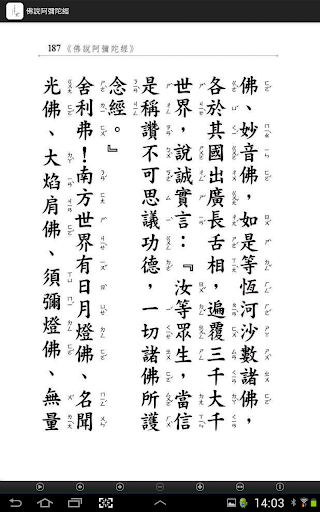 佛說阿彌陀經
187 《佛說阿彌陀經》
佛、妙音佛，如是等恆河沙數諸佛，
各於其國出廣長舌相，遍覆三千大千
世界，說誠實言：『汝等眾生，當信
是稱讚不可思議功德，一切諸佛所護
念經。』
舍利弗！南方世界有日月燈佛、名聞
光佛、大焰肩佛、須彌燈佛、無量
14:03